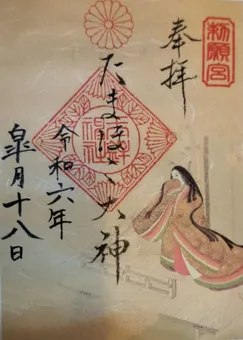 勅願宮
奉拝
たまほこ大神
令和六年
皐月十八日